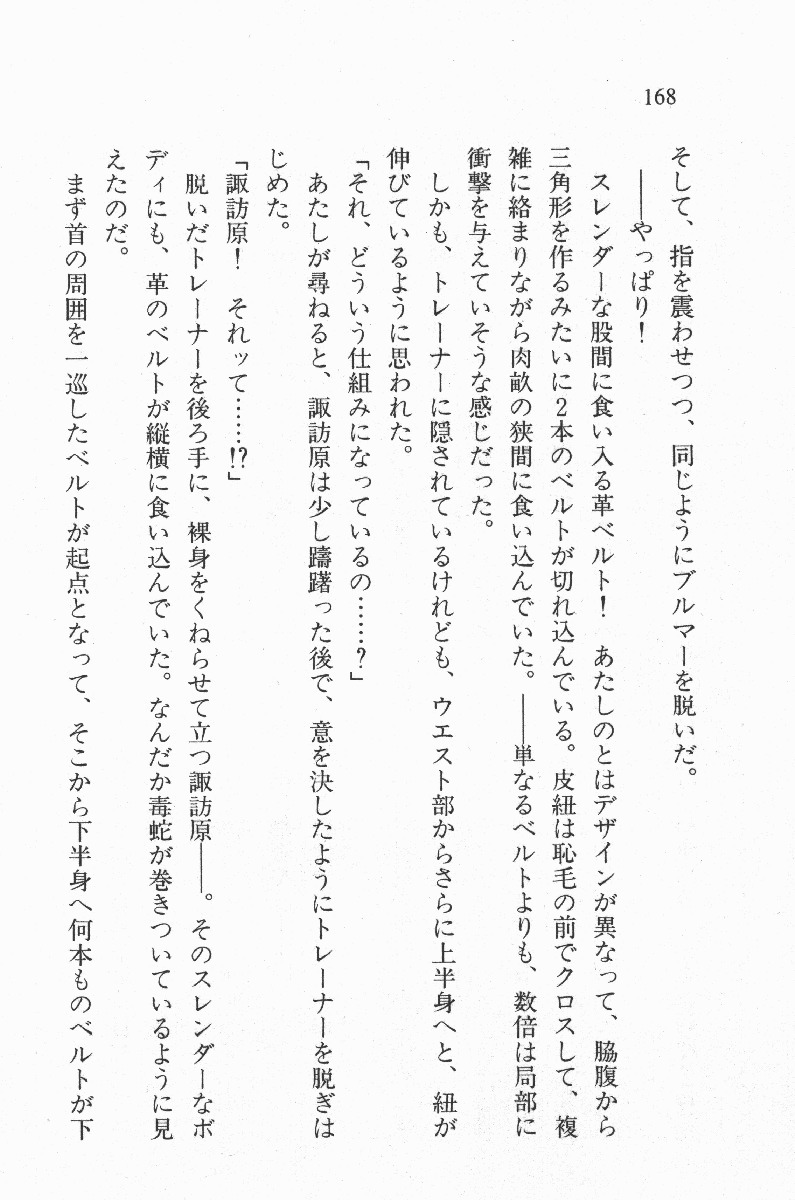 168
そして、指を震わせつつ、同じようにブルマーを脱いだ。
――やっぱり！
スレンダーな股間に食い入る革ベルト！　あたしのとはデザインが異なって、脇腹から
三角形を作るみたいに２本のベルトが切れ込んでいる。皮紐は恥毛の前でクロスして、複
雑に絡まりながら肉畝の狭間に食い込んでいた。――単なるベルトよりも、数倍は局部に
衝撃を与えていそうな感じだった。
しかも、トレーナーに隠されているけれども、ウエスト部からさらに上半身へと、紐が
伸びているように思われた。
「それ、どういう仕組みになっているの……？」
あたしが尋ねると、諏訪原は少し躊躇った後で、意を決したようにトレーナーを脱ぎは
じめた。
「諏訪原！　それッて……!?」
脱いだトレーナーを後ろ手に、裸身をくねらせて立つ諏訪原――。そのスレンダーなボ
ディにも、革のベルトが縦横に食い込んでいた。なんだか毒蛇が巻きついているように見
えたのだ。
まず首の周囲を一巡したベルトが起点となって、そこから下半身へ何本ものベルトが下